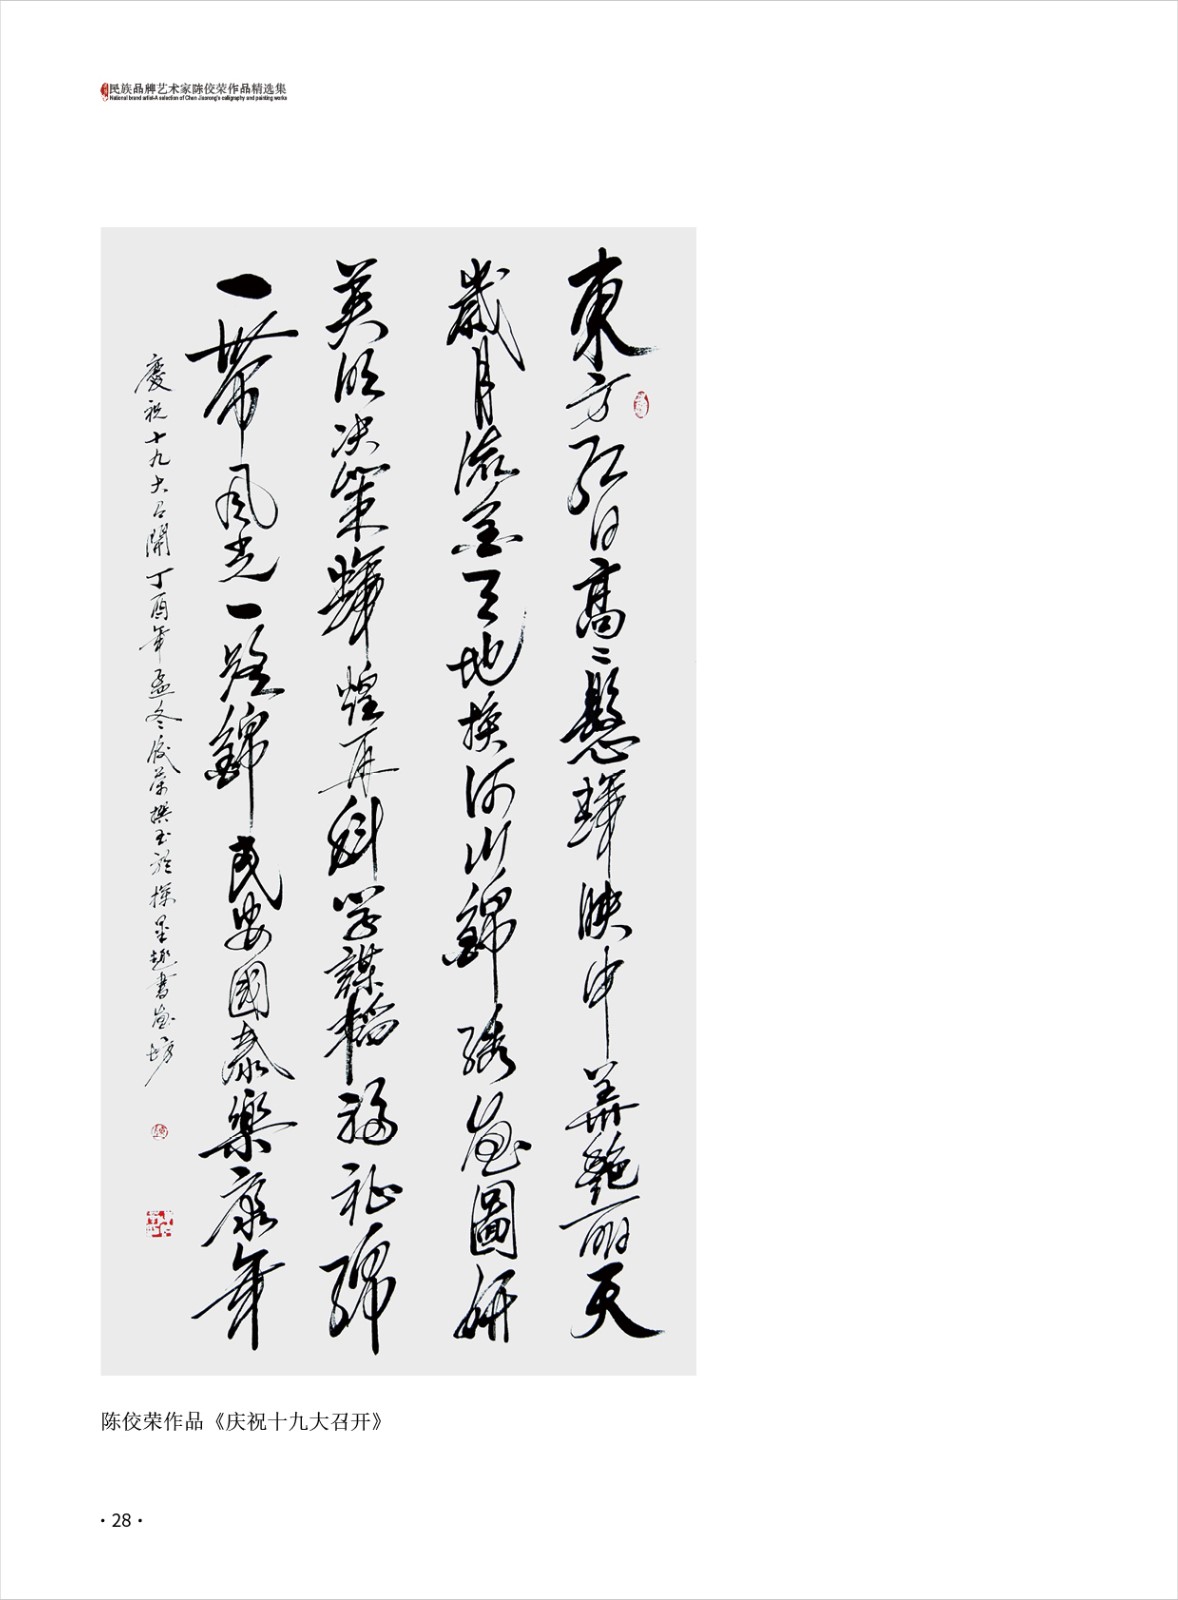 民族品牌艺术家陈佼荣作品精选集
National brand artist-A selection of Chen Jiaorong's calligraphy and painting works
東方红日高〻懸輝映中華艷丽天
歲月流金天地换河山錦綉畫圖妍
英明决策輝煌再科学謀韜福祉綿
一帶風光一路錦民安國泰樂康年
慶祝十九大召開丁酉年孟冬佼荣撰書於探墨趣書畫坊
陈佼荣作品《庆祝十九大召开》
·28·